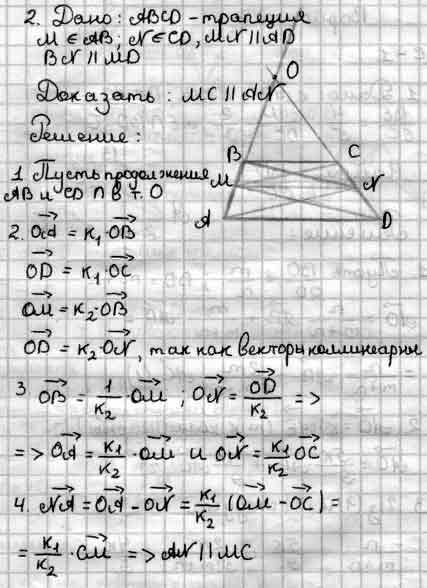 2. Дано: ABCD - трапеция
M ∈ AB; N ∈ CD, MN || AD
BN || MD
Доказать: MC || AN
Решение:
1. Пусть продолжения
AB и CD ∩ в т. O
2. OA⃗ = k₁·OB⃗
OD⃗ = k₁·OC⃗
OM⃗ = k₂·OB⃗
OD⃗ = k₂·ON⃗, так как векторы коллинеарны
3. OB⃗ = 1/k₂ · OM⃗ ; ON⃗ = OD⃗/k₂ =>
=> OA⃗ = k₁/k₂ · OM⃗ и ON⃗ = k₁/k₂ OC⃗
4. NA⃗ = OA⃗ - ON⃗ = k₁/k₂ (OM⃗ - OC⃗) =
= k₁/k₂ · CM⃗ => AN || MC
O
B
C
M
N
A
D